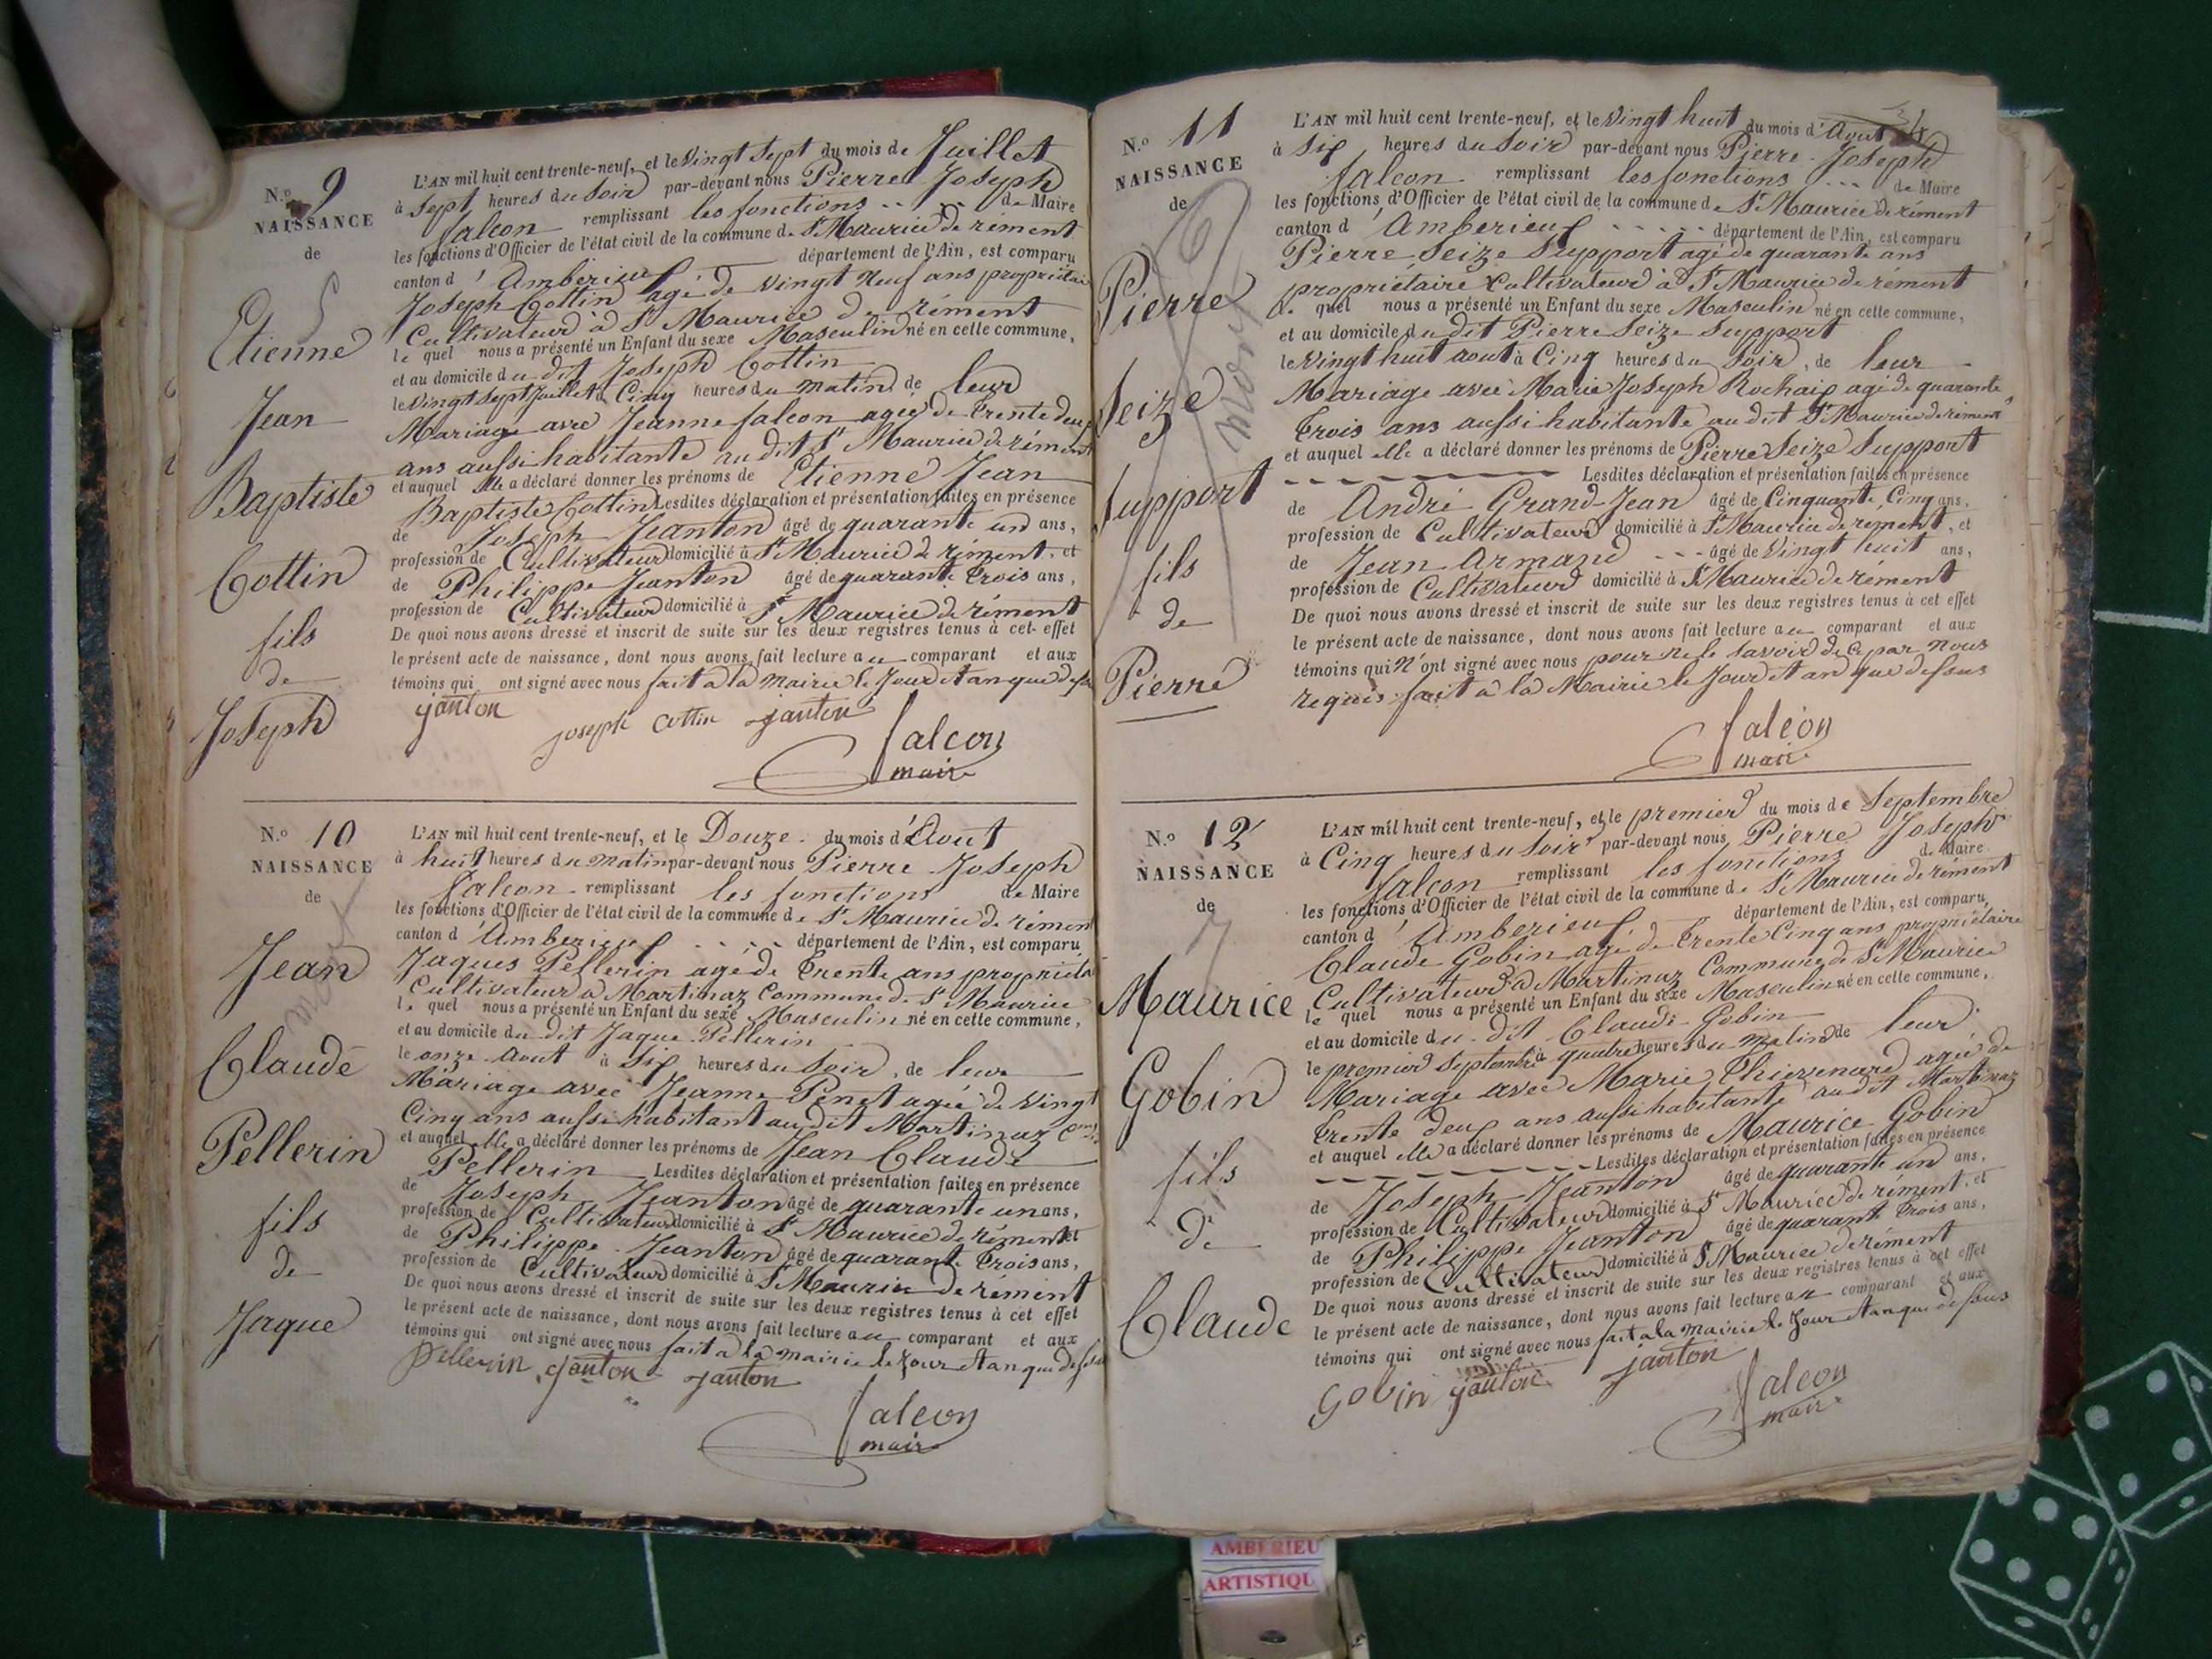 N.o 9
NAISSANCE
de
Etienne
Jean
Baptiste
Cottin
fils
de
Joseph
L'AN mil huit cent trente-neuf, et le Vingt Sept du mois de Juillet
à Sept heures du Soir par-devant nous Pierre Joseph
falcon remplissant les fonctions de Maire
les fonctions d'Officier de l'état civil de la commune de St Maurice de rément
canton d'Amberieux département de l'Ain, est comparu
Joseph Cottin agé de Vingt Neuf ans propriétaire
Cultivateur à St Maurice de rément
le quel nous a présenté un Enfant du sexe Masculin né en cette commune,
et au domicile du dit Joseph Cottin
le Vingt Sept Juillet à Cinq heures du matin de leur
Mariage avec Jeanne falcon agée de trente deux
ans aussi habitante au dit St Maurice de rément
et auquel elle a déclaré donner les prénoms de Etienne Jean
Baptiste Cottin Lesdites déclaration et présentation faites en présence
de Joseph Jeanton âgé de quarante un ans,
profession de Cultivateur domicilié à St Maurice de rément, et
de Philippe Jeanton âgé de quarante trois ans,
profession de Cultivateur domicilié à St Maurice de rément
De quoi nous avons dressé et inscrit de suite sur les deux registres tenus à cet effet
le présent acte de naissance, dont nous avons fait lecture au comparant et aux
témoins qui ont signé avec nous fait à la Mairie le Jour et an que dessus
janton joseph cottin janton
falcon
maire
N.o 10
NAISSANCE
de
mort
Jean
Claude
Pellerin
fils
de
Jaque
L'AN mil huit cent trente-neuf, et le Douze du mois d'Aout
à huit heures du matin par-devant nous Pierre Joseph
falcon remplissant les fonctions de Maire
les fonctions d'Officier de l'état civil de la commune de St Maurice de rément
canton d'Amberieux département de l'Ain, est comparu
Jaques Pellerin agé de trente ans propriétaire
Cultivateur à Martinaz Commune de St Maurice
le quel nous a présenté un Enfant du sexe Masculin né en cette commune,
et au domicile du dit Jaque Pellerin
le onze aout à Six heures du Soir, de leur
Mariage avec Jeanne Penet agée de Vingt
Cinq ans aussi habitant au dit Martinaz
et auquel elle a déclaré donner les prénoms de Jean Claude
Pellerin Lesdites déclaration et présentation faites en présence
de Joseph Jeanton âgé de quarante un ans,
profession de Cultivateur domicilié à St Maurice de rément et
de Philippe Jeanton âgé de quarante trois ans,
profession de Cultivateur domicilié à St Maurice de rément
De quoi nous avons dressé et inscrit de suite sur les deux registres tenus à cet effet
le présent acte de naissance, dont nous avons fait lecture au comparant et aux
témoins qui ont signé avec nous fait à la mairie le Jour et an que dessus
pellerin janton janton
falcon
maire
N.o 11
NAISSANCE
de
6
mort
Pierre
Seize
Support
fils
de
Pierre
L'AN mil huit cent trente-neuf, et le Vingt huit du mois d'Aout
à Six heures du Soir par-devant nous Pierre Joseph
falcon remplissant les fonctions de Maire
les fonctions d'Officier de l'état civil de la commune de St Maurice de rément
canton d'Amberieux département de l'Ain, est comparu
Pierre Seize Support agé de quarante ans
propriétaire Cultivateur à St Maurice de rément
le quel nous a présenté un Enfant du sexe Masculin né en cette commune,
et au domicile du dit Pierre Seize Support
le Vingt huit aout à Cinq heures du Soir, de leur
Mariage avec Marie Joseph Rochaix agé de quarante
trois ans aussi habitante au dit St Maurice de rément
et auquel elle a déclaré donner les prénoms de Pierre Seize Support
Lesdites déclaration et présentation faites en présence
de André Grand-Jean âgé de Cinquante Cinq ans,
profession de Cultivateur domicilié à St Maurice de rément, et
de Jean Armand âgé de Vingt huit ans,
profession de Cultivateur domicilié à St Maurice de rément
De quoi nous avons dressé et inscrit de suite sur les deux registres tenus à cet effet
le présent acte de naissance, dont nous avons fait lecture au comparant et aux
témoins qui N'ont signé avec nous pour ne le savoir de ce par nous
requis fait à la Mairie le Jour et an que dessus
falcon
maire
N.o 12
NAISSANCE
de
7
Maurice
Gobin
fils
de
Claude
L'AN mil huit cent trente-neuf, et le premier du mois de Septembre
à Cinq heures du Soir par-devant nous Pierre Joseph
falcon remplissant les fonctions de Maire
les fonctions d'Officier de l'état civil de la commune de St Maurice de rément
canton d'Amberieux département de l'Ain, est comparu
Claude Gobin agé de trente Cinq ans propriétaire
Cultivateur à Martinaz Commune de St Maurice
le quel nous a présenté un Enfant du sexe Masculin né en cette commune,
et au domicile du dit Claude Gobin
le premier Septembre à quatre heures du Matin de leur
Mariage avec Marie agée de
trente deux ans aussi habitante au dit Martinaz
et auquel elle a déclaré donner les prénoms de Maurice Gobin
Lesdites déclaration et présentation faites en présence
de Joseph Jeanton âgé de quarante un ans,
profession de Cultivateur domicilié à St Maurice de rément, et
de Philippe Jeanton âgé de quarante trois ans,
profession de Cultivateur domicilié à St Maurice de rément
De quoi nous avons dressé et inscrit de suite sur les deux registres tenus à cet effet
le présent acte de naissance, dont nous avons fait lecture au comparant et aux
témoins qui ont signé avec nous fait à la mairie le Jour et an que dessus
Gobin janton janton
falcon
maire
AMBERIEU
ARTISTIQU